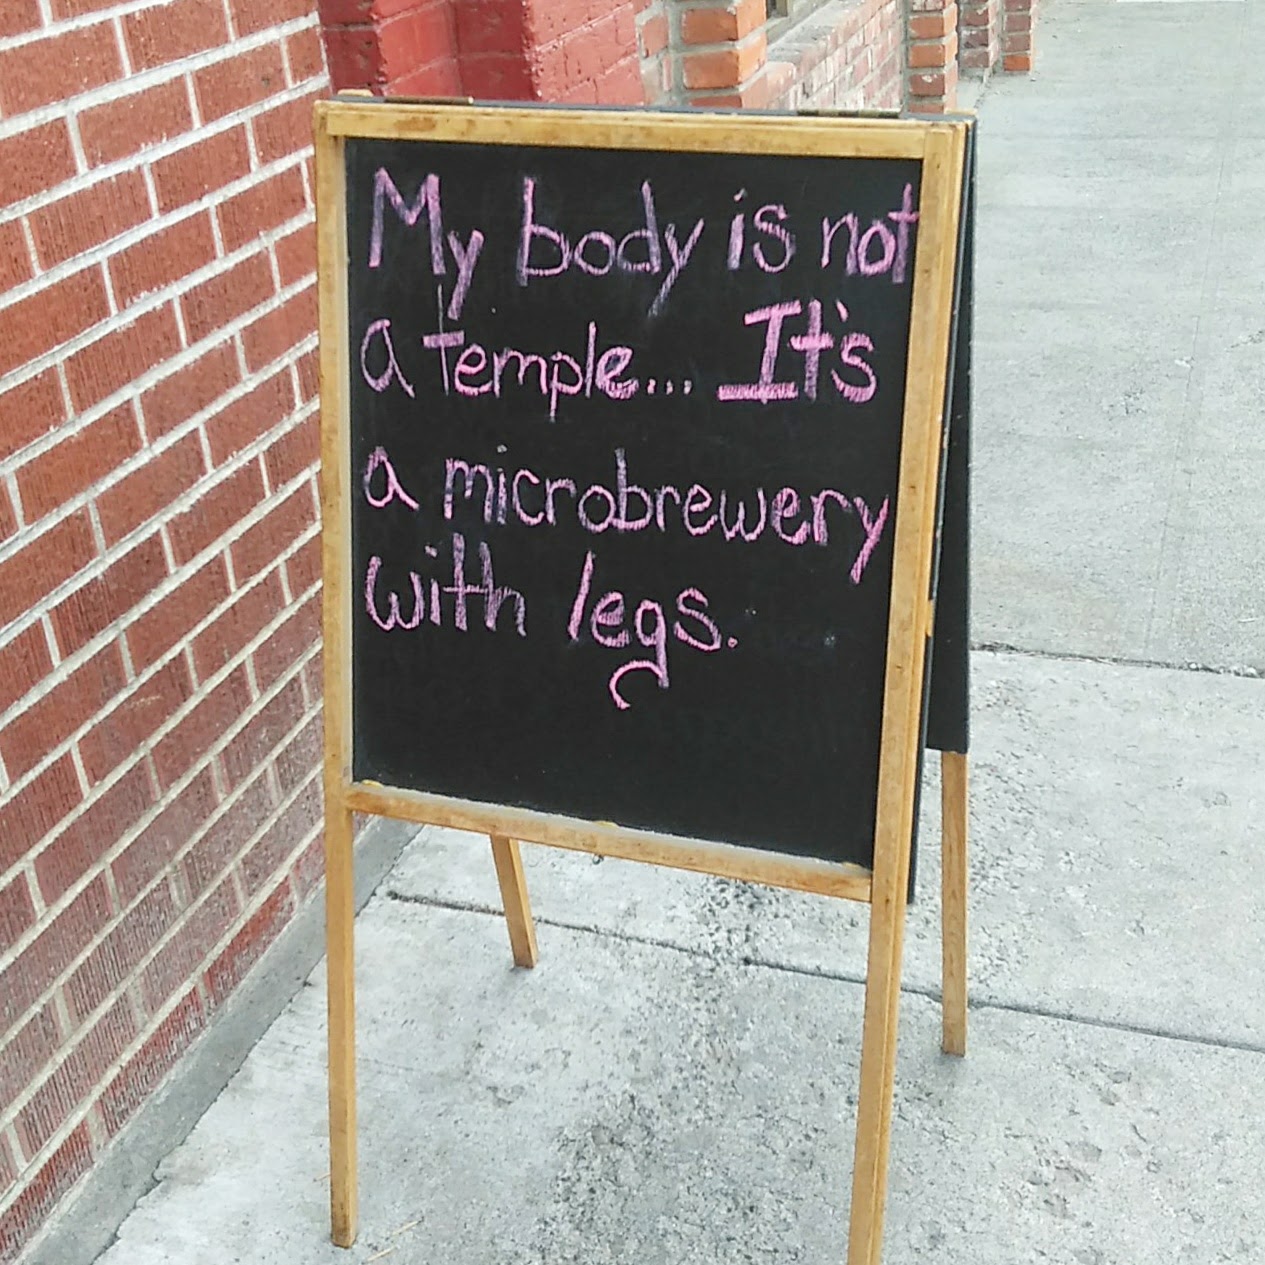 My body is not
a temple... It's
a microbrewery
with legs.